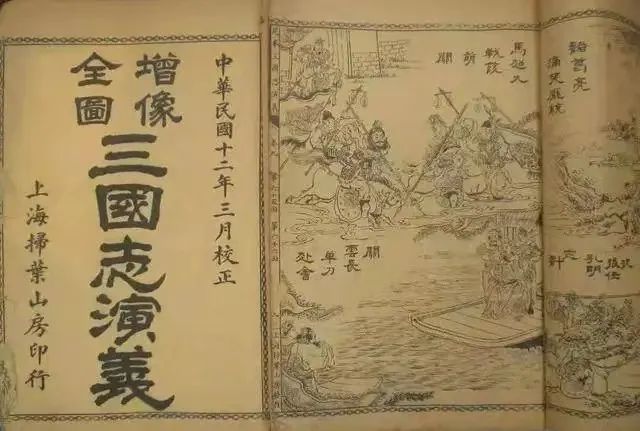 中華民國十二年三月校正
增像
全圖
三國志演義
上海掃葉山房印行
諸葛亮
痛哭龐統
張任
孔明
定
計
馬超大
戰葭
萌
關
關
雲長
單刀
赴會